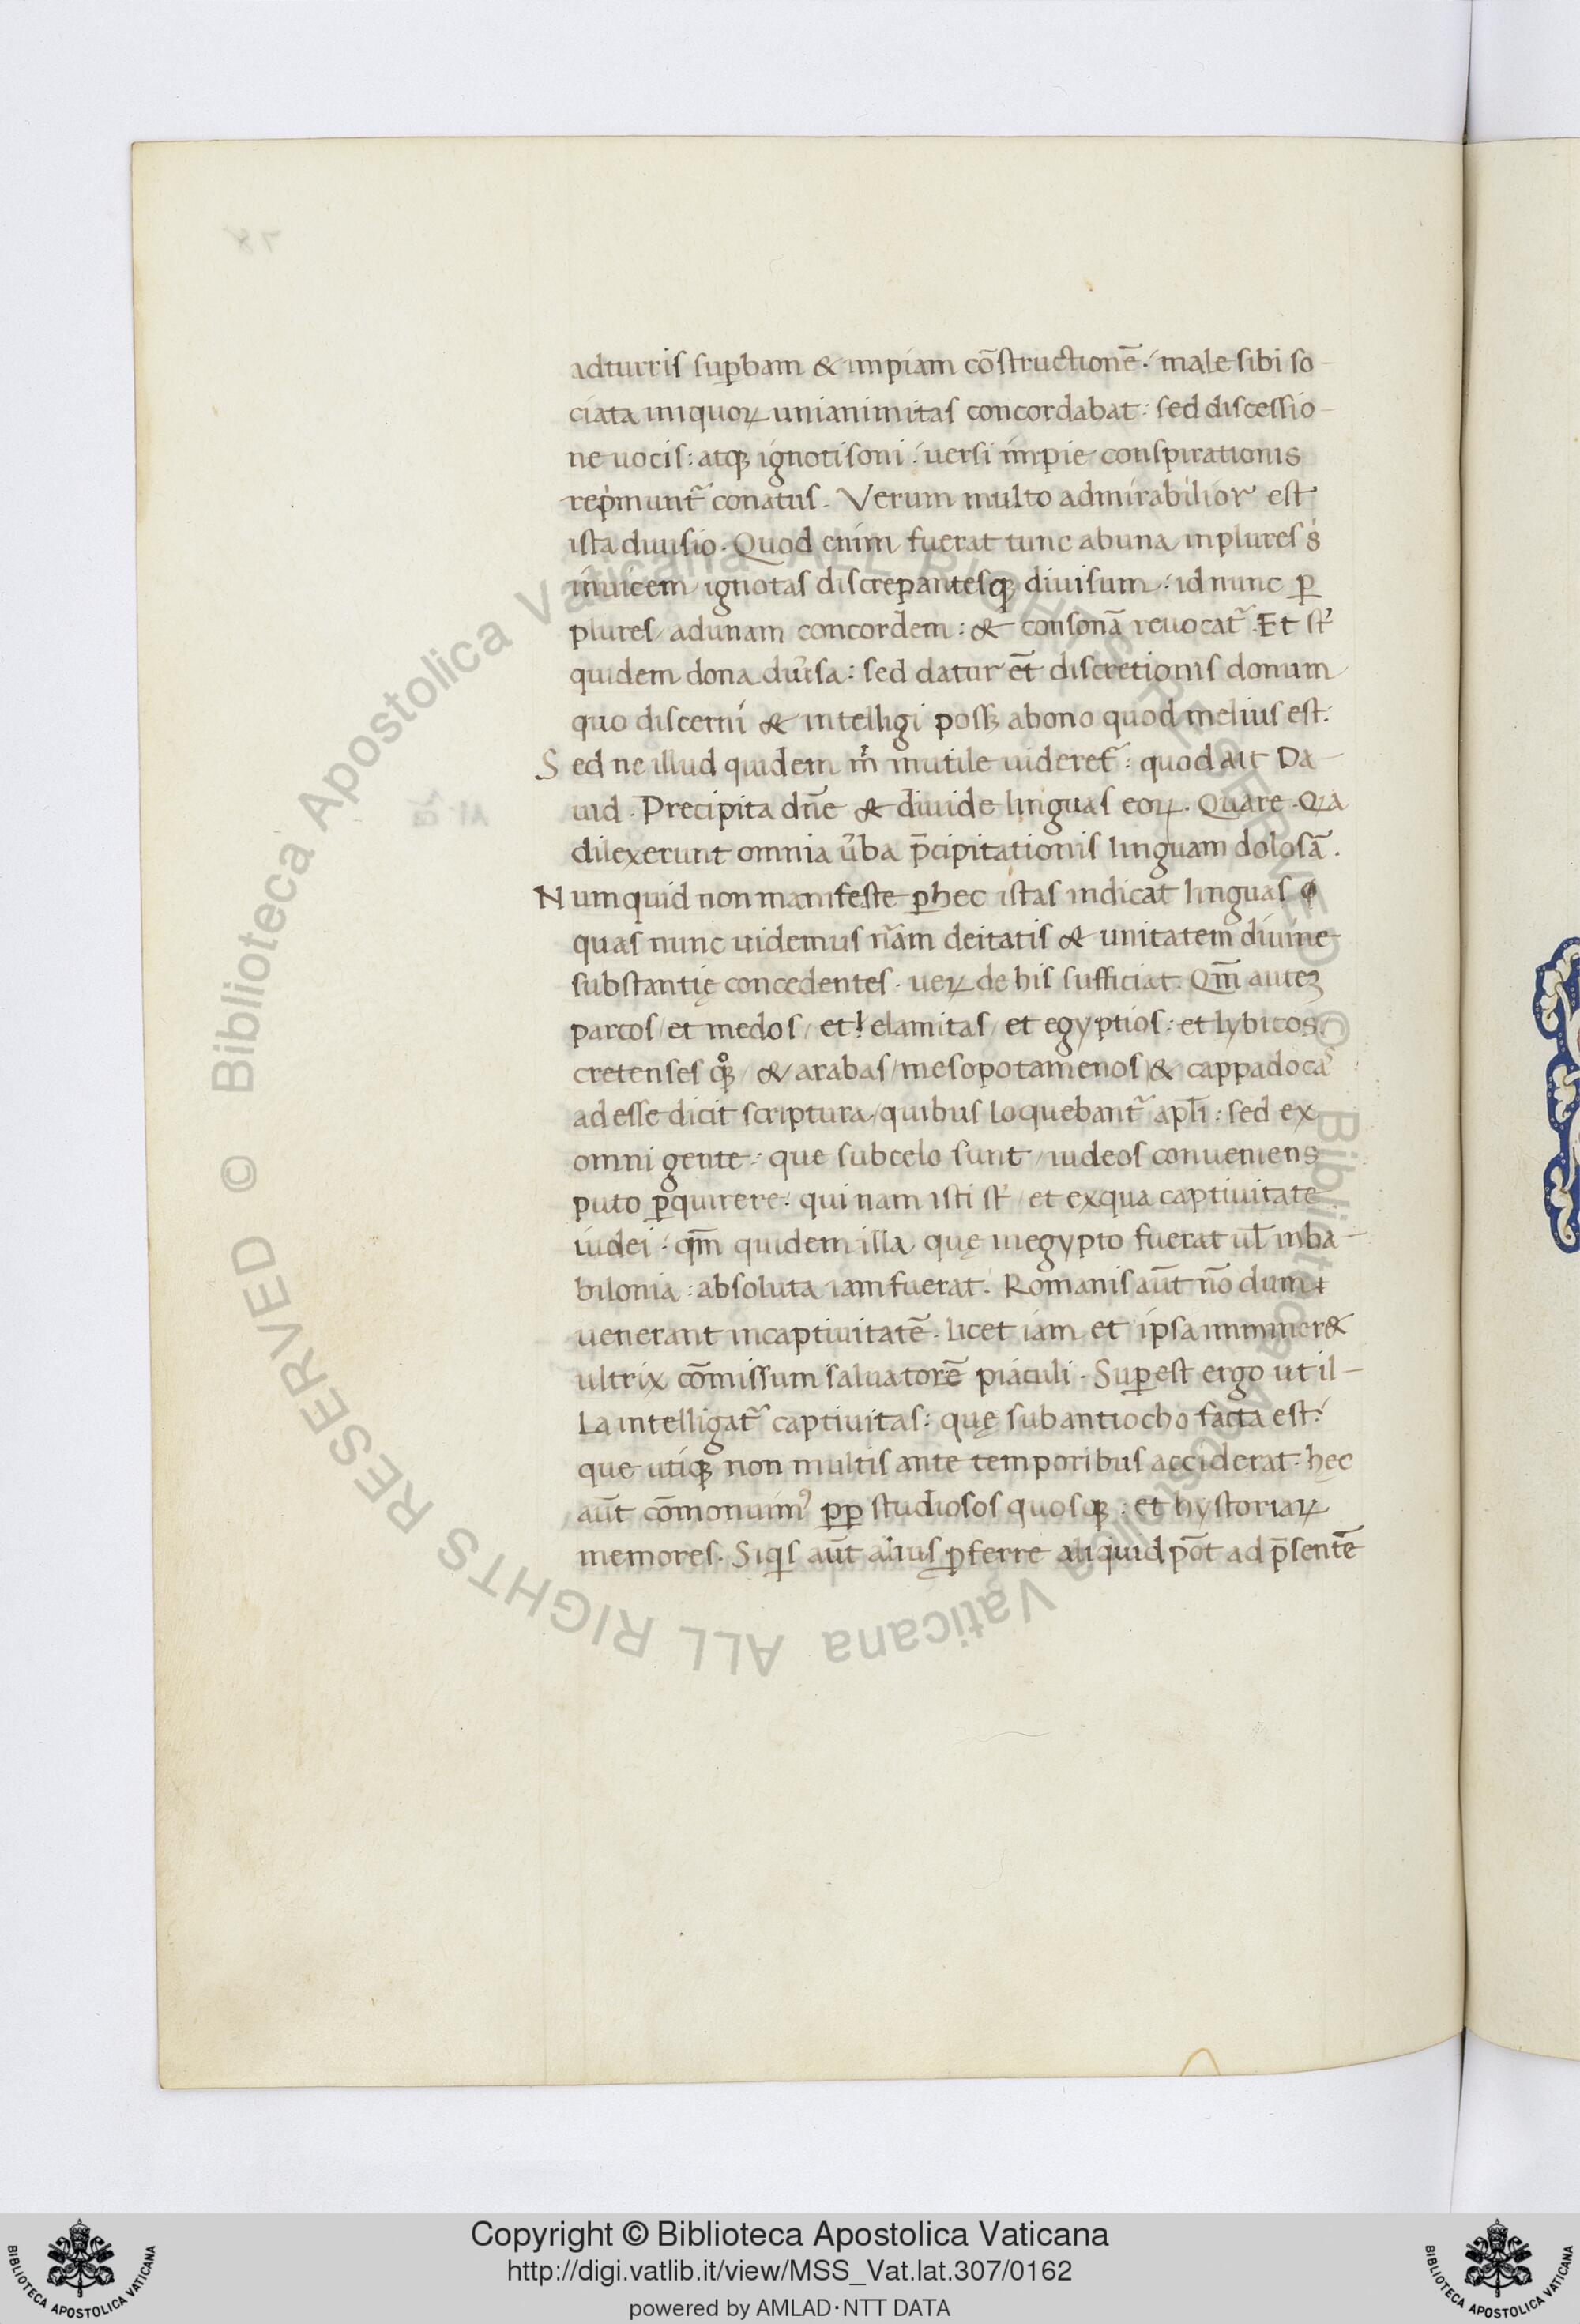 adturris suꝑbam & impiam cōstructionē· male sibi so-
ciata iniquoꝝ unianimitas concordabat: sed discessio-
ne uocis: atqꝫ ignoti soni: uersi impie conspirationis
repͥmunt᷑ conatus. Verum multo admirabilior est
ista diuisio. Quod enim fuerat tunc abuna inplures s
inuicem ignotas discrepantesqꝫ diuisum: id nunc ꝑ
plures adunam concordem: & consonā reuocat᷑. Et st̕
quidem dona diu̕sa: sed datur et̄ discretionis donum
quo discerni & intelligi possꝫ abono quod melius est.
Sed ne illud quidem m̍ inutile uideret᷑: quod ait Da-
uid. Precipita dn̄e & diuide linguas eoꝝ. Quare. Qꝛa
dilexerunt omnia u̕ba p̄cipitationis linguam dolosā.
Numquid non manifeste ꝑhec istas indicat linguas
quas nunc uidemus nr̄am deitatis & unitatem diuine
substantię concedentes. ueꝝ de his sufficiat. Qm̄ auteꝫ
parcos/ et medos/ et elamitas/ et egyptios: et lybicos.
cretenses qꝫ̊/ & arabas/ mesopotamenos & cappadoca
ad esse dicit scriptura/ quibus loquebant᷑ apl̄i: sed ex
omni gente: que subcelo sunt/ iudeos conueniens
puto ꝑquirere. qui nam isti st̕/ et exqua captiuitate
iudei: qm̄ quidem illa quę inegypto fuerat ul̄ inba-
bilonia: absoluta iam fuerat. Romanis aūt nōdum
uenerant incaptiuitatē. licet iam et ipsa imminer&
ultrix cōmissum saluatorē piaculi. Suꝑest ergo ut il-
la intelligat᷑ captiuitas: quę subantiocho facta est:
que utiqꝫ non multis ante temporibus acciderat: hęc
aūt cōmonuimꝰ ꝓꝑ studiosos quosqꝫ: et hystoriaꝝ
memores. Siqͥs aūt alius ꝓferre aliquid pōt ad p̄sentē
Copyright © Biblioteca Apostolica Vaticana
http://digi.vatlib.it/view/MSS_Vat.lat.307/0162
powered by AMLAD·NTT DATA